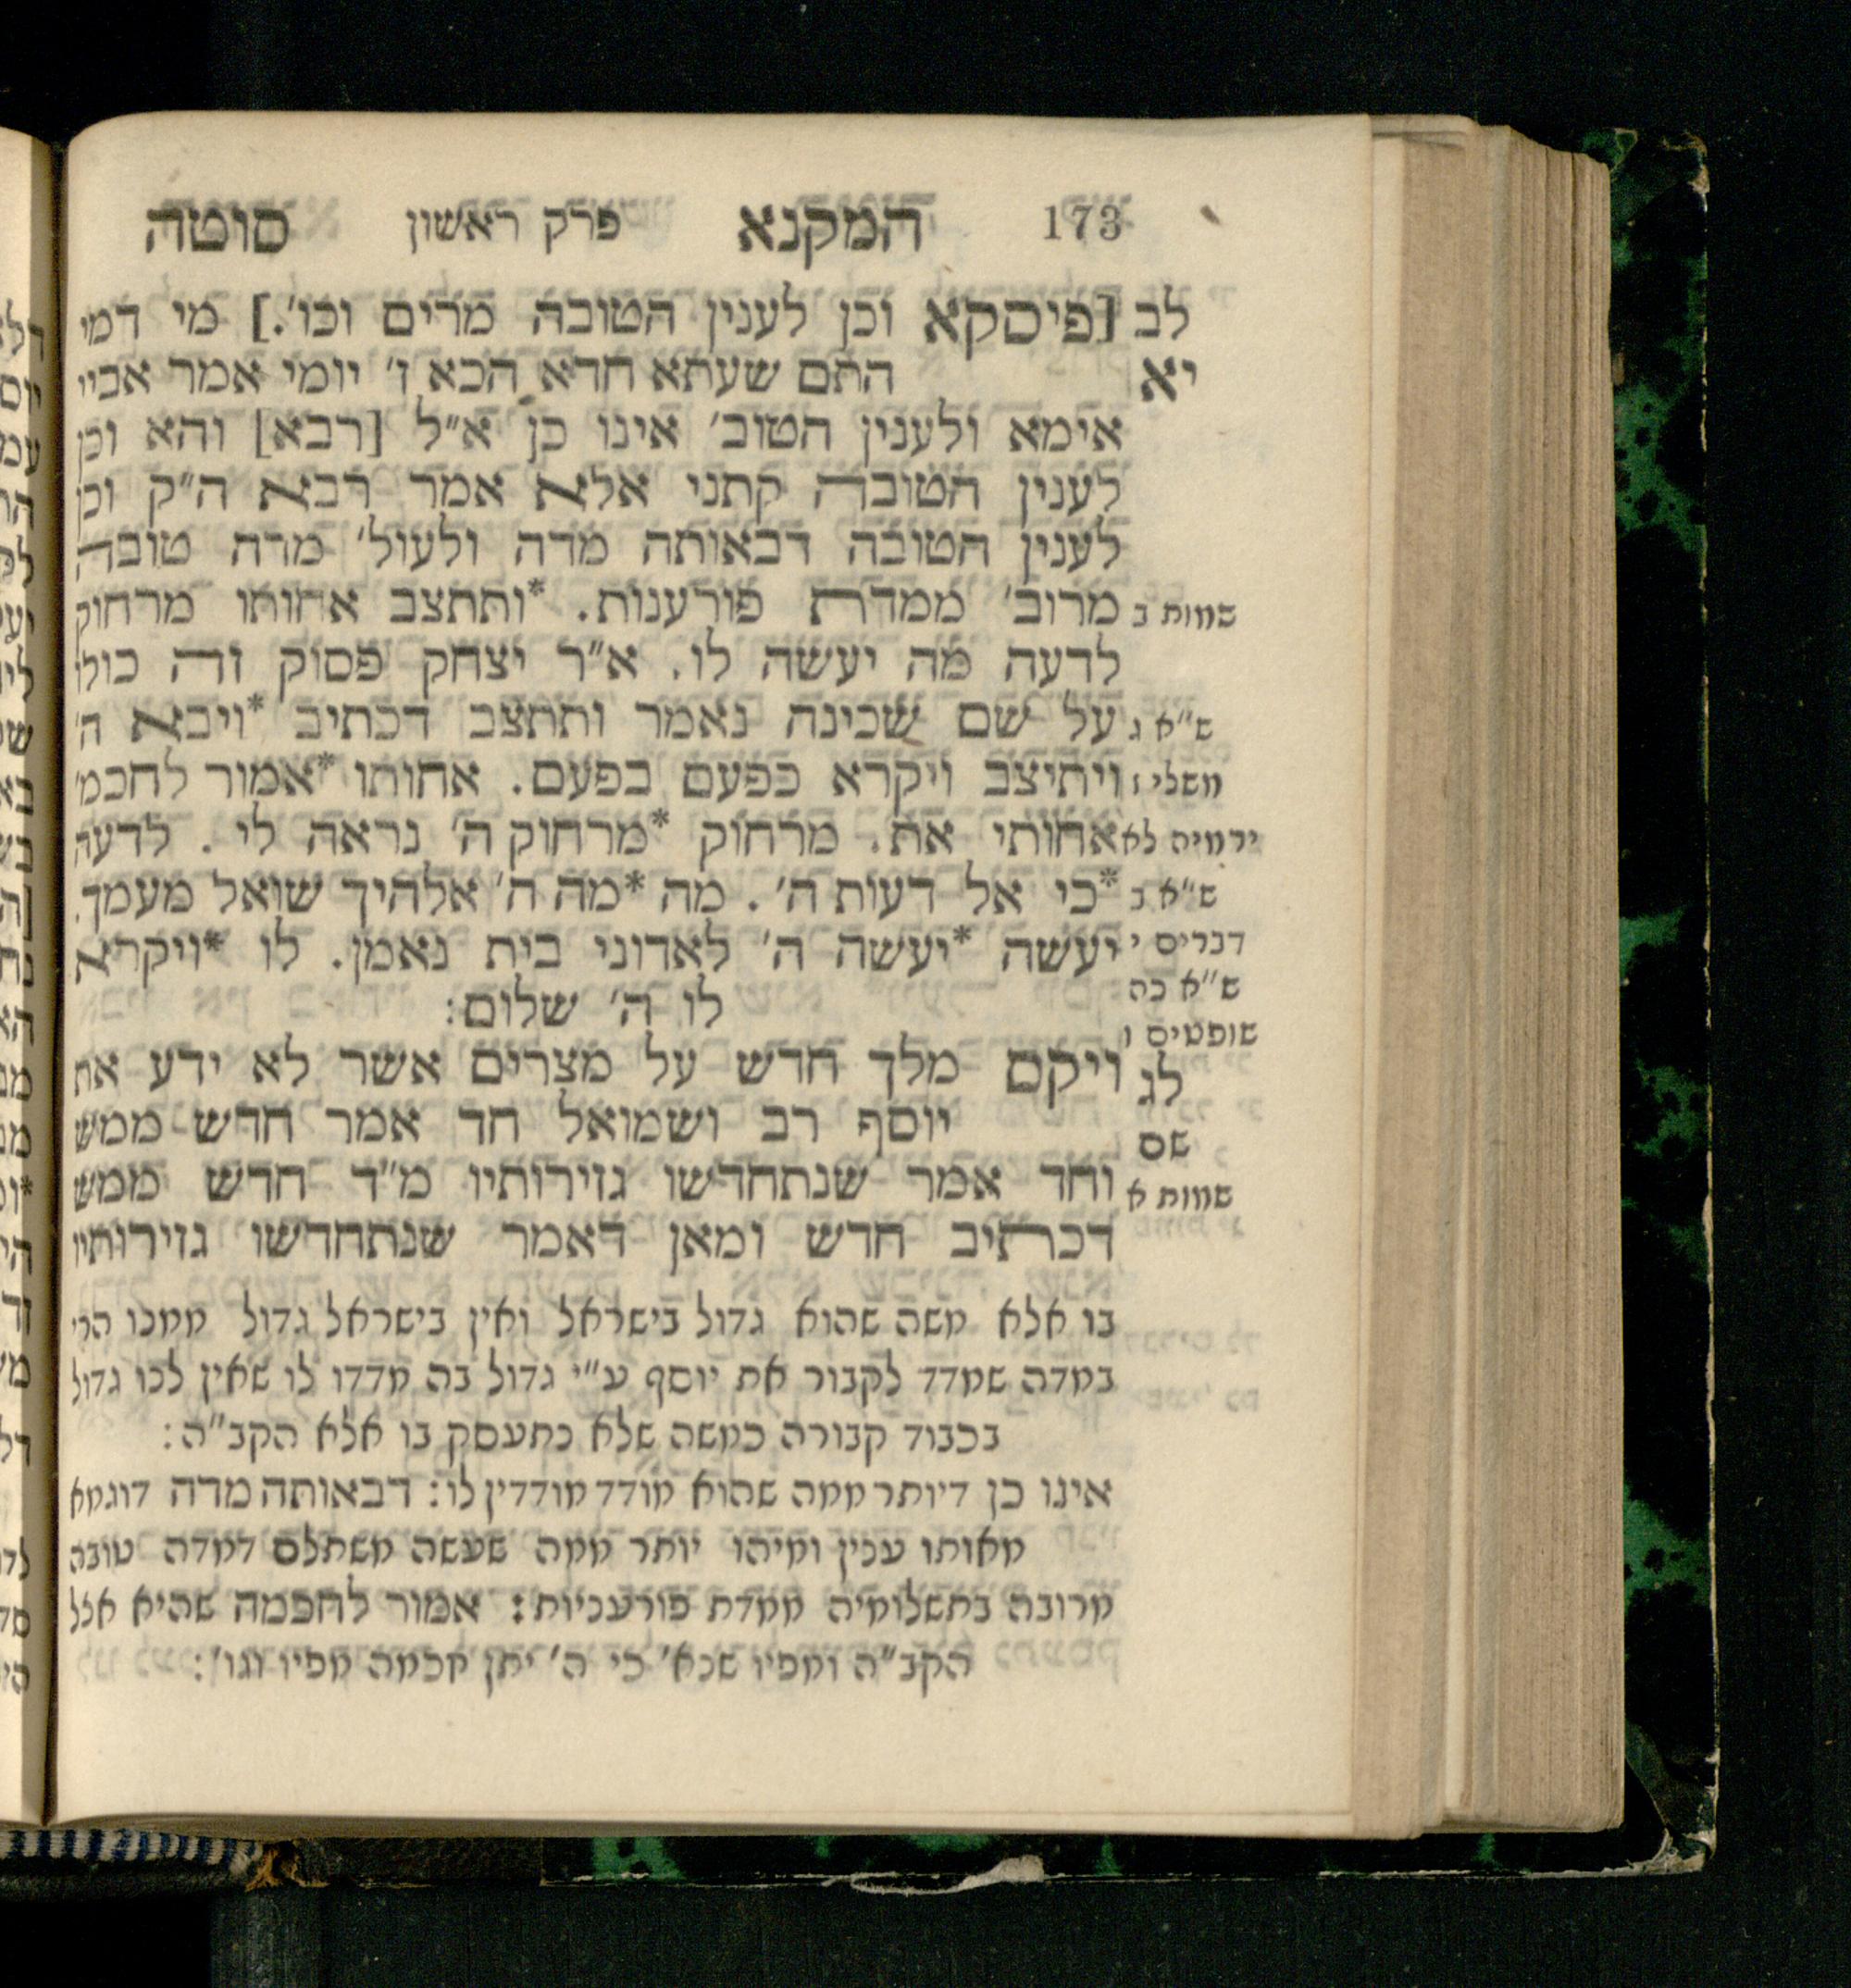 173 המקנא פרק ראשון סוטה
לב [פיסקא וכן לענין הטובה מרים וכו׳.] מי דמי
יא התם שעתא חדא הכא ז׳ יומי אמר אביי
אימא ולענין הטוב׳ אינו כן א״ל [רבא] והא וכן
לענין הטובה קתני אלא אמר רבא ה״ק וכן
לענין הטובה דבאותה מדה ולעול׳ מדה טובה
שמות ב מרוב׳ ממדת פורענות. *ותתצב אחותו מרחוק
לדעה מה יעשה לו. א״ר יצחק פסוק זה כולו
ש״א ג על שם שכינה נאמר ותתצב דכתיב *ויבא ה׳
משלי ז ויתיצב ויקרא כפעם בפעם. אחותו *אמור לחכמ׳
ירמיה לא אחותי את. מרחוק *מרחוק ה׳ נראה לי. לדעה
ש״א ב *כי אל דעות ה׳. מה *מה ה׳ אלהיך שואל מעמך.
דברים י יעשה *יעשה ה׳ לאדוני בית נאמן. לו *ויקרא
ש״א כה לו ה׳ שלום:
שופטים ו
לג ויקם מלך חדש על מצרים אשר לא ידע את
שם יוסף רב ושמואל חד אמר חדש ממש
שמות א וחד אמר שנתחדשו גזירותיו מ״ד חדש ממש
דכתיב חדש ומאן דאמר שנתחדשו גזירותיו
בו אלא משה שהוא גדול בישראל ואין בישראל גדול ממנו הרי
במדה שמדד לקבור את יוסף ע״י גדול בה מדדו לו שאין לנו גדול
בכבוד קבורה כמשה שלא נתעסק בו אלא הקב״ה:
אינו כן דיותר ממה שהוא מודד מודדין לו: דבאותה מדה דוגמא
מאותו ענין ומיהו יותר ממה שעשה משתלם דמדה טובה
מרובה בתשלומיה ממדת פורעניות: אמור לחכמה שהיא אצל
הקב״ה ומפיו שנא׳ כי ה׳ יתן חכמה מפיו וגו׳: